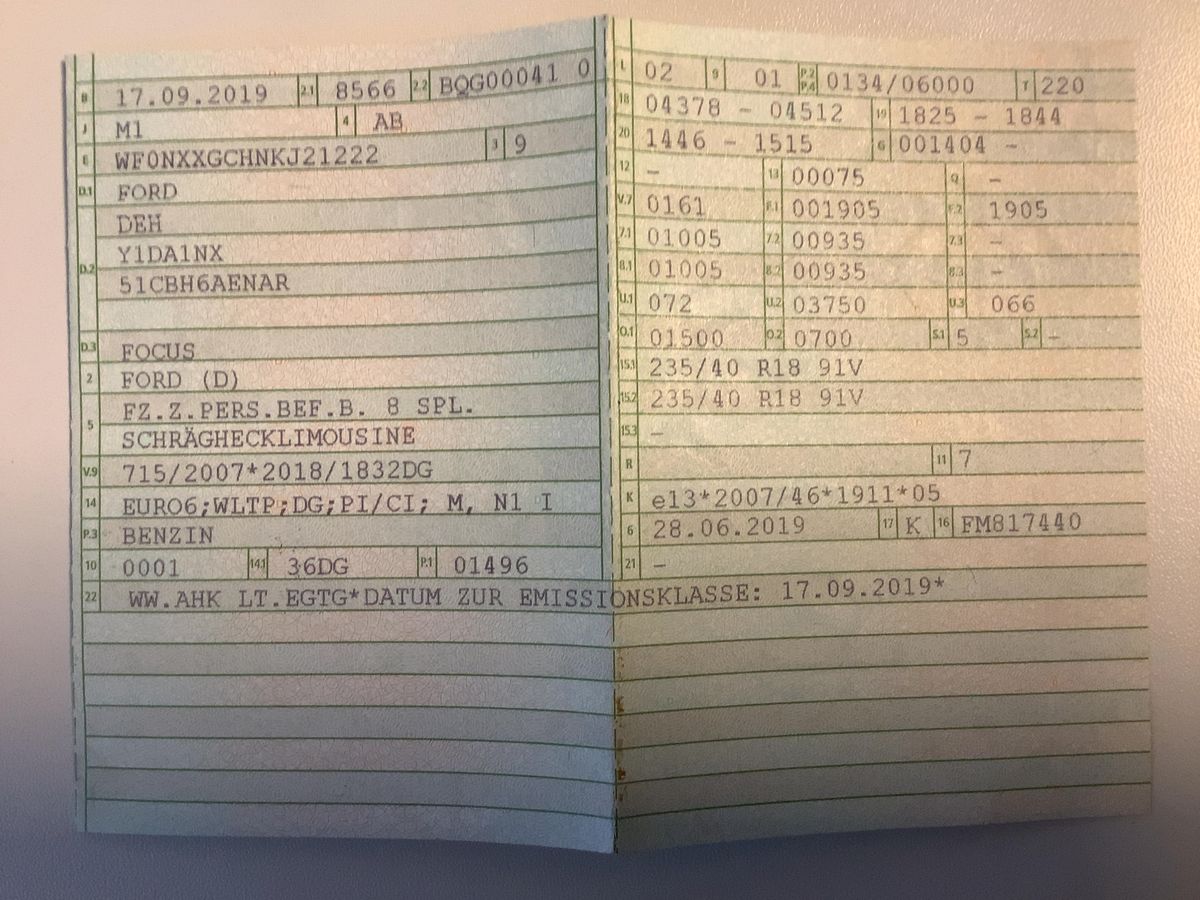 B 17.09.2019 2.1 8566 2.2 BQG00041 0
J M1 4 AB
E WF0NXXGCHNKJ21222 3 9
D.1 FORD
DEH
D.2 Y1DA1NX
51CBH6AENAR
D.3 FOCUS
2 FORD (D)
5 FZ.Z.PERS.BEF.B. 8 SPL.
SCHRÄGHECKLIMOUSINE
V.9 715/2007*2018/1832DG
14 EURO6;WLTP;DG;PI/CI; M, N1 I
P.3 BENZIN
10 0001 14.1 36DG P.1 01496
L 02 9 01 P.2 P.4 0134/06000 T 220
18 04378 - 04512 19 1825 - 1844
20 1446 - 1515 G 001404 -
12 - 13 00075 Q -
V.7 0161 F.1 001905 F.2 1905
7.1 01005 7.2 00935 7.3 -
8.1 01005 8.2 00935 8.3 -
U.1 072 U.2 03750 U.3 066
O.1 01500 O.2 0700 S.1 5 S.2 -
15.1 235/40 R18 91V
15.2 235/40 R18 91V
15.3 -
R 11 7
K e13*2007/46*1911*05
6 28.06.2019 17 K 16 FM817440
21 -
22 WW.AHK LT.EGTG*DATUM ZUR EMISSIONSKLASSE: 17.09.2019*